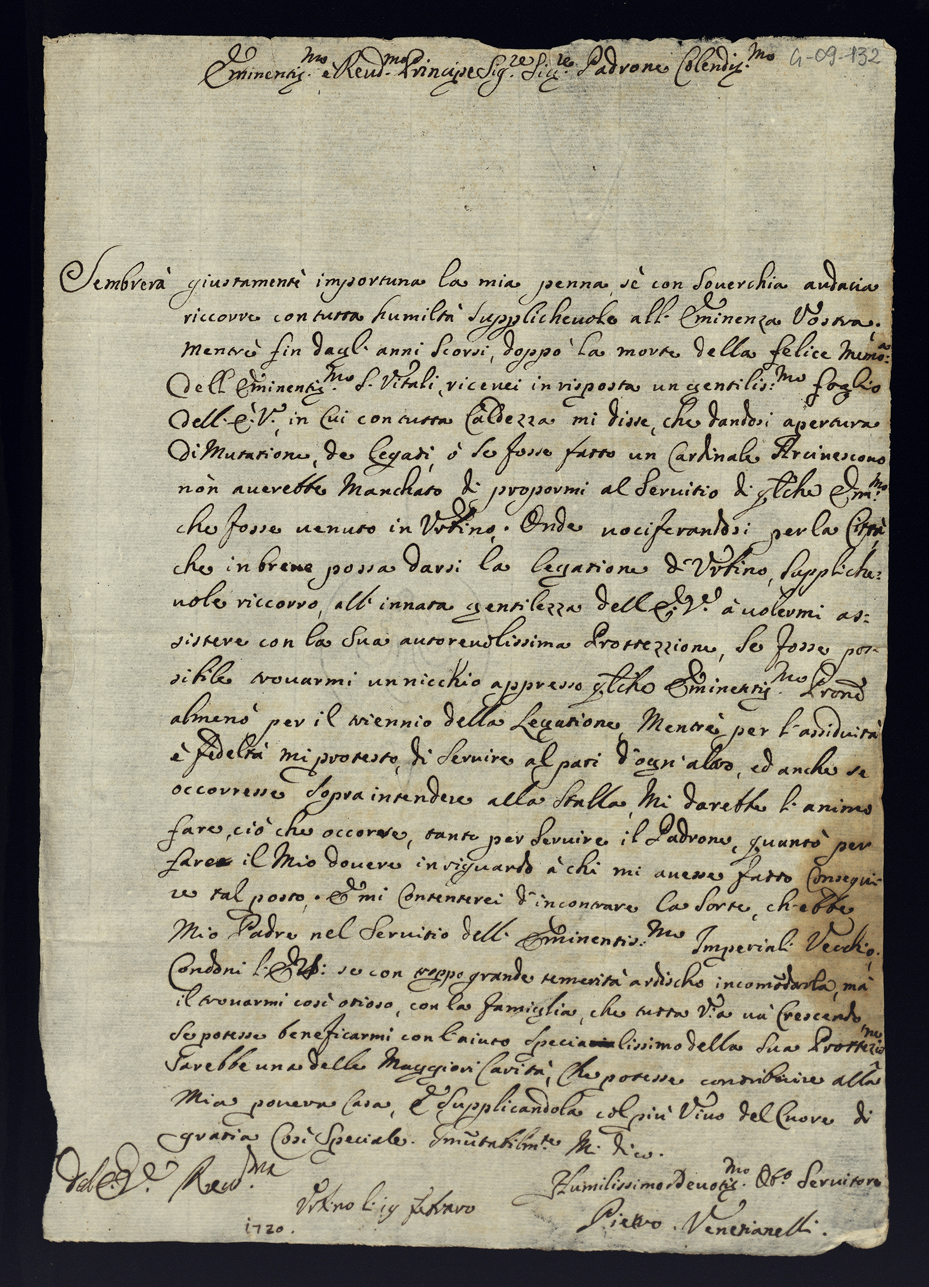 G-09-132
Eminentis.mo e Reud.mo Principe Sig.re Sig.re Padrone Colendis.mo
Sembrerà giustamentè importuna la mia penna, sè con souerchia audacia
riccorre con tutta humiltà supplicheuole all' Eminenza Vostra,
mentrè fin dagl' anni scorsi, doppo la morte della felice Mem:a
dell Eminentis.mo S. Vitali, riceuei in risposta un gentilis:mo foglio
dell' E. V., in cui con tutta Caldezza mi disse, che dandosi apertura
di Mutatione, de Legati, ò se fosse fatto un Cardinale Arciuescouo
nòn auerebbe Manchato di propormi al Seruitio di q'lche Em.mo
che fosse uenuto in Vrbino. Onde uociferandosi per la Città
che in breue possa darsi la legatione d'Vrbino, suppliche:
uole riccorro, all' innata gentilezza dell E. V. à uolermi as:
sistere con la sua autoreuolissima Prottezzione, se fosse pos-
sibile trouarmi un nicchio appresso q'lche Eminentis.mo Prone
almenò per il triennio della Legatione, Mentrè per l'assiduità
è fedeltà mi protesto, di seruire al pari d'ogn' altro, ed anche se
occorresse sopra intendere alla stalla, Mi darebbe l'animo
fare, ciò che occorre, tantò per seruire il Padrone, quantò per
fare il Mio douere in riguardo à chi mi auesse fatto Consegui-
re tal posto. E mi Contenterei d'incontrare la sorte, ch'ebbe
Mio Padre nel Seruitio dell' Eminentis:mo Imperiali Vecchio,
Condoni l'E.V: se con troppo grande temerità ardischo incomodarla, mà
il trouarmi così otioso, con la famiglia, che tutta Via uà Crescendo
se potesse beneficarmi con l'aiuto specialissimo della sua Prottezio.ne
sarebbe una delle Maggiori Carità, che potesse contribuire alla
Mia pouera Casa, E supplicandola col più Viuo del Cuore di
gratia Così speciale. Immutabilm.te Mi dico.
Dal E. V. Reud.ma
Humilissimo Deuotis.mo Obb.o Seruitore
Vrbino li 19 febraro
1720.
Pietro Venerianelli.